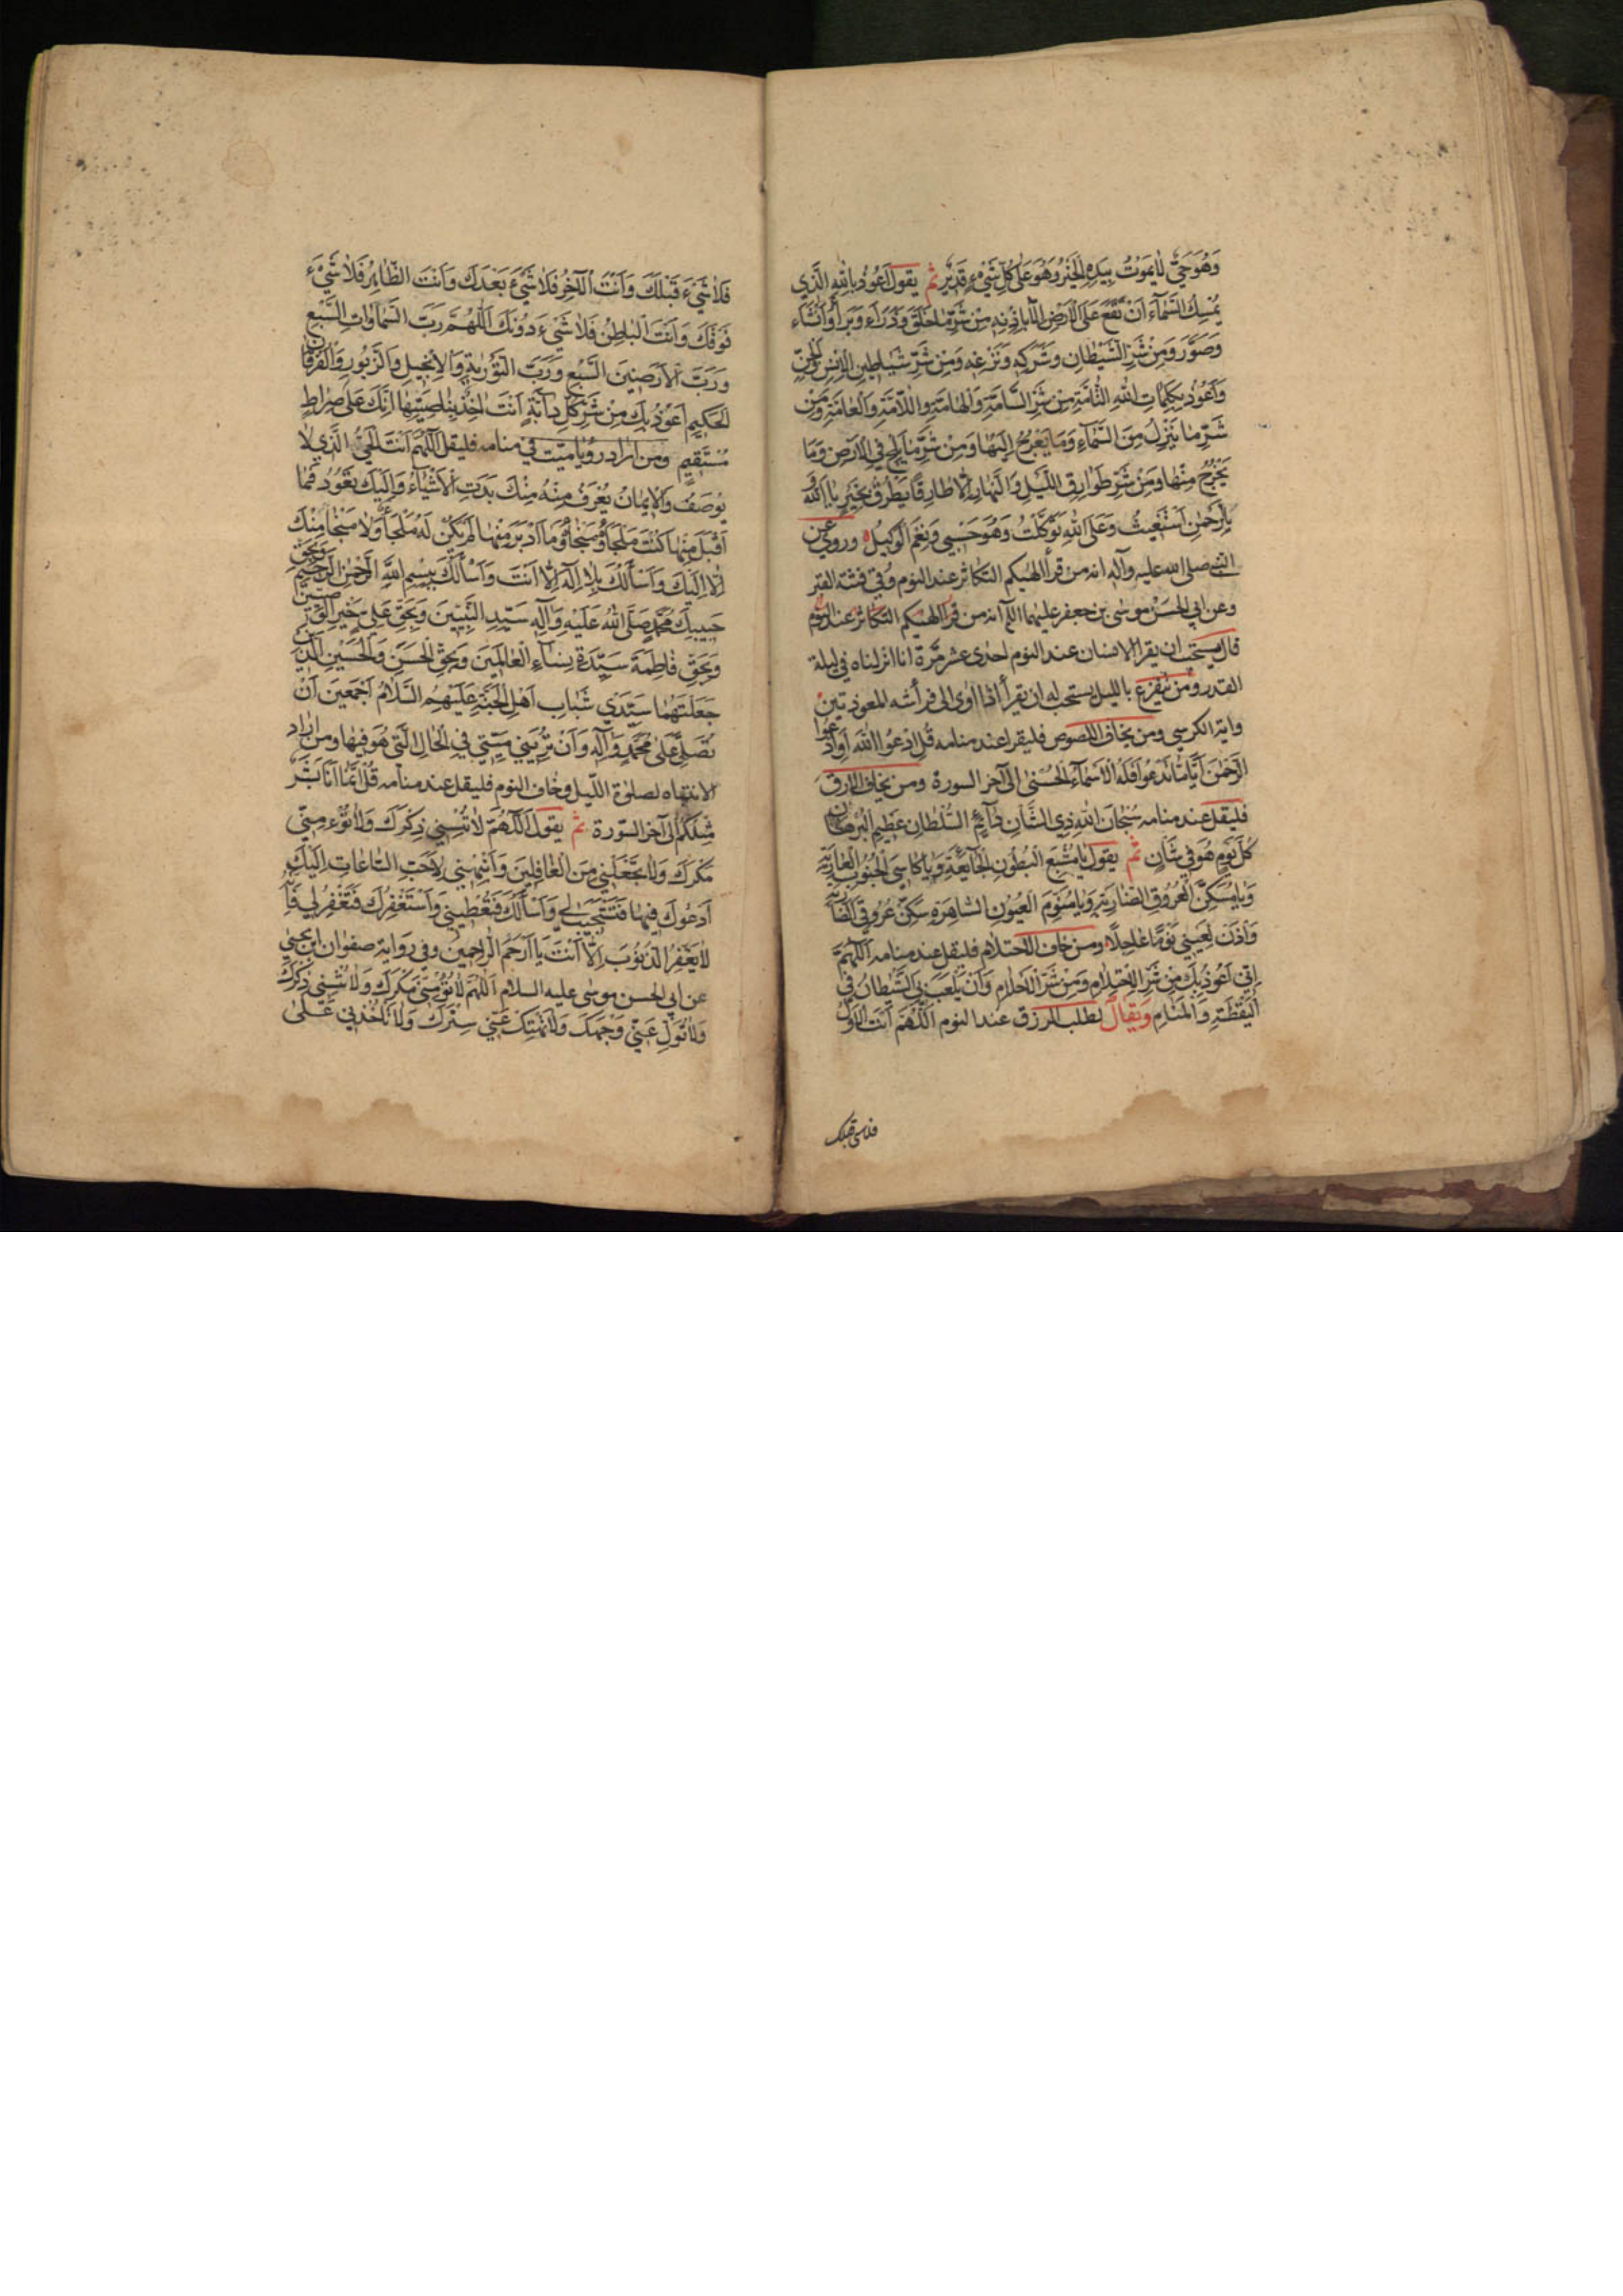 وَهُوَ حَيٌّ لَا يَمُوتُ بِيَدِهِ الْخَيْرُ وَهُوَ عَلَى كُلِّ شَيْءٍ قَدِيرٌ ثم يقول اَعُوذُ بِاللهِ الَّذِي
يُمْسِكُ السَّمَآءَ اَنْ تَقَعَ عَلَى الْاَرْضِ اِلَّا بِاِذْنِهِ مِنْ شَرِّ مَا خَلَقَ وَذَرَاَ وَبَرَاَ وَاَنْشَاَ
وَصَوَّرَ وَمِنْ شَرِّ الشَّيْطَانِ وَشَرَكِهِ وَنَزْغِهِ وَمِنْ شَرِّ شَيَاطِينِ الْاِنْسِ وَالْجِنِّ
وَاَعُوذُ بِكَلِمَاتِ اللهِ التَّامَّةِ مِنْ شَرِّ السَّامَّةِ وَالْهَامَّةِ وَاللَّامَّةِ وَالْعَامَّةِ وَمِنْ
شَرِّ مَا يَنْزِلُ مِنَ السَّمَآءِ وَمَا يَعْرُجُ اِلَيْهَا وَمِنْ شَرِّ مَا يَلِجُ فِي الْاَرْضِ وَمَا
يَخْرُجُ مِنْهَا وَمِنْ شَرِّ طَوَارِقِ اللَّيْلِ وَالنَّهَارِ اِلَّا طَارِقًا يَطْرُقُ بِخَيْرٍ يَا اَللهُ وَ
بِالرَّحْمٰنِ اَسْتَغِيثُ وَعَلَى اللهِ تَوَكَّلْتُ وَهُوَ حَسْبِي وَنِعْمَ الْوَكِيلُ وروي عن
النبي صلى الله عليه وآله انه من قرأ الهيكم التكاثر عند النوم وُقي فتنة القبر
وعن ابي الحسن موسى بن جعفر عليهما السلام انه من قرأ الهيكم التكاثر عند النوم
قال يستحب ان يقرأ الانسان عند النوم احدى عشر مرّة انا انزلناه في ليلة
القدر ومن يتفزع بالليل يستحب له ان يقرأ اذا اوى الى فراشه المعوذتين
واية الكرسي ومن يخاف اللصوص فليقرا عند منامه قُلِ ادْعُوا اللهَ اَوِ ادْعُوا
الرَّحْمٰنَ اَيًّا مَا تَدْعُوا فَلَهُ الْاَسْمَآءُ الْحُسْنٰى الى آخر السورة ومن يخاف الارق
فليقل عند منامه سُبْحَانَ اللهِ ذِي الشَّانِ دَآئِمِ السُّلْطَانِ عَظِيمِ الْبُرْهَانِ
كُلَّ يَوْمٍ هُوَ فِي شَانٍ ثم يقول يَا مُشْبِعَ الْبُطُونِ الْجَآئِعَةِ وَيَا كَاسِيَ الْجُنُوبِ الْعَارِيَةِ
وَيَا مُسَكِّنَ الْعُرُوقِ الضَّارِبَةِ وَيَا مُنَوِّمَ الْعُيُونِ السَّاهِرَةِ سَكِّنْ عُرُوقِيَ الضَّارِبَةَ
وَاْذَنْ لِعَيْنِي نَوْمًا عَاجِلًا ومن خاف الاحتلام فليقل عند منامه اَللّٰهُمَّ
اِنِّي اَعُوذُ بِكَ مِنْ شَرِّ الْاِحْتِلَامِ وَمِنْ شَرِّ الْاَحْلَامِ وَاَنْ يَلْعَبَ بِيَ الشَّيْطَانُ فِي
الْيَقْظَةِ وَالْمَنَامِ ويقال لطلب الرزق عند النوم اَللّٰهُمَّ اَنْتَ الْاَوَّلُ
فلاشئ قبلك
فَلَا شَيْءَ قَبْلَكَ وَاَنْتَ الْآخِرُ فَلَا شَيْءَ بَعْدَكَ وَاَنْتَ الظَّاهِرُ فَلَا شَيْءَ
فَوْقَكَ وَاَنْتَ الْبَاطِنُ فَلَا شَيْءَ دُونَكَ اَللّٰهُمَّ رَبَّ السَّمَاوَاتِ السَّبْعِ
وَرَبَّ الْاَرَضِينَ السَّبْعِ وَرَبَّ التَّوْرٰيةِ وَالْاِنْجِيلِ وَالزَّبُورِ وَالْفُرْقَانِ
الْحَكِيمِ اَعُوذُ بِكَ مِنْ شَرِّ كُلِّ دَآبَّةٍ اَنْتَ اٰخِذٌ بِنَاصِيَتِهَا اِنَّكَ عَلٰى صِرَاطٍ
مُسْتَقِيمٍ ومن اراد رويا ميت في منامه فليقل اَللّٰهُمَّ اَنْتَ الْحَيُّ الَّذِي لَا
يُوصَفُ وَالْاِيمَانُ يُعْرَفُ مِنْهُ مِنْكَ بَدَتِ الْاَشْيَآءُ وَاِلَيْكَ تَعُودُ فَمَا
اَقْبَلَ مِنْهَا كُنْتَ مَلْجَاَهُ وَمَنْجَاهُ وَمَا اَدْبَرَ مِنْهَا لَمْ يَكُنْ لَهُ مَلْجَاٌ وَلَا مَنْجَا مِنْكَ
اِلَّا اِلَيْكَ وَاَسْاَلُكَ بِلَا اِلٰهَ اِلَّا اَنْتَ وَاَسْاَلُكَ بِبِسْمِ اللهِ الرَّحْمٰنِ الرَّحِيمِ وَبِحَقِّ
حَبِيبِكَ مُحَمَّدٍ صَلَّى اللهُ عَلَيْهِ وَآلِهِ سَيِّدِ النَّبِيِّينَ وَبِحَقِّ عَلِيٍّ خَيْرِ الْوَصِيِّينَ
وَبِحَقِّ فَاطِمَةَ سَيِّدَةِ نِسَآءِ الْعَالَمِينَ وَبِحَقِّ الْحَسَنِ وَالْحُسَيْنِ الَّذَيْنِ
جَعَلْتَهُمَا سَيِّدَيْ شَبَابِ اَهْلِ الْجَنَّةِ عَلَيْهِمُ السَّلَامُ اَجْمَعِينَ اَنْ
تُصَلِّيَ عَلٰى مُحَمَّدٍ وَآلِهِ وَاَنْ تُرِيَنِي مَيِّتِي فِي الْحَالِ الَّتِي هُوَ فِيهَا ومن اراد
الانتباه لصلوة الليل وخاف النوم فليقل عند منامه قُلْ اِنَّمَا اَنَا بَشَرٌ
مِثْلُكُمْ الى آخر السّورة ثم يقول اَللّٰهُمَّ لَا تُنْسِنِي ذِكْرَكَ وَلَا تُؤْمِنِّي
مَكْرَكَ وَلَا تَجْعَلْنِي مِنَ الْغَافِلِينَ وَاَنْبِهْنِي لِاَحَبِّ السَّاعَاتِ اِلَيْكَ
اَدْعُوكَ فِيهَا فَتَسْتَجِيبُ لِي وَاَسْاَلُكَ فَتُعْطِينِي وَاَسْتَغْفِرُكَ فَتَغْفِرُ لِي فَاِنَّهُ
لَا يَغْفِرُ الذُّنُوبَ اِلَّا اَنْتَ يَا اَرْحَمَ الرَّاحِمِينَ وفي رواية صفوان ابن يحيى
عن ابي الحسن موسى عليه السلام اَللّٰهُمَّ لَا تُؤْمِنِّي مَكْرَكَ وَلَا تُنْسِنِي ذِكْرَكَ
وَلَا تُوَلِّ عَنِّي وَجْهَكَ وَلَا تَهْتِكْ عَنِّي سِتْرَكَ وَلَا تَأْخُذْنِي عَلٰى